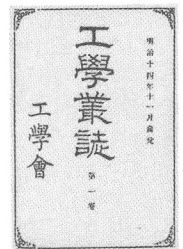 明治十四年十一月發兌
工學叢誌
第一卷
工學會